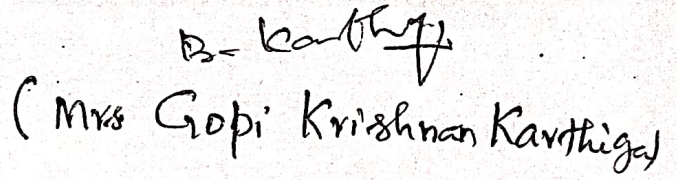 B. Karthiga
(Mrs Gopi Krishnan Karthiga)